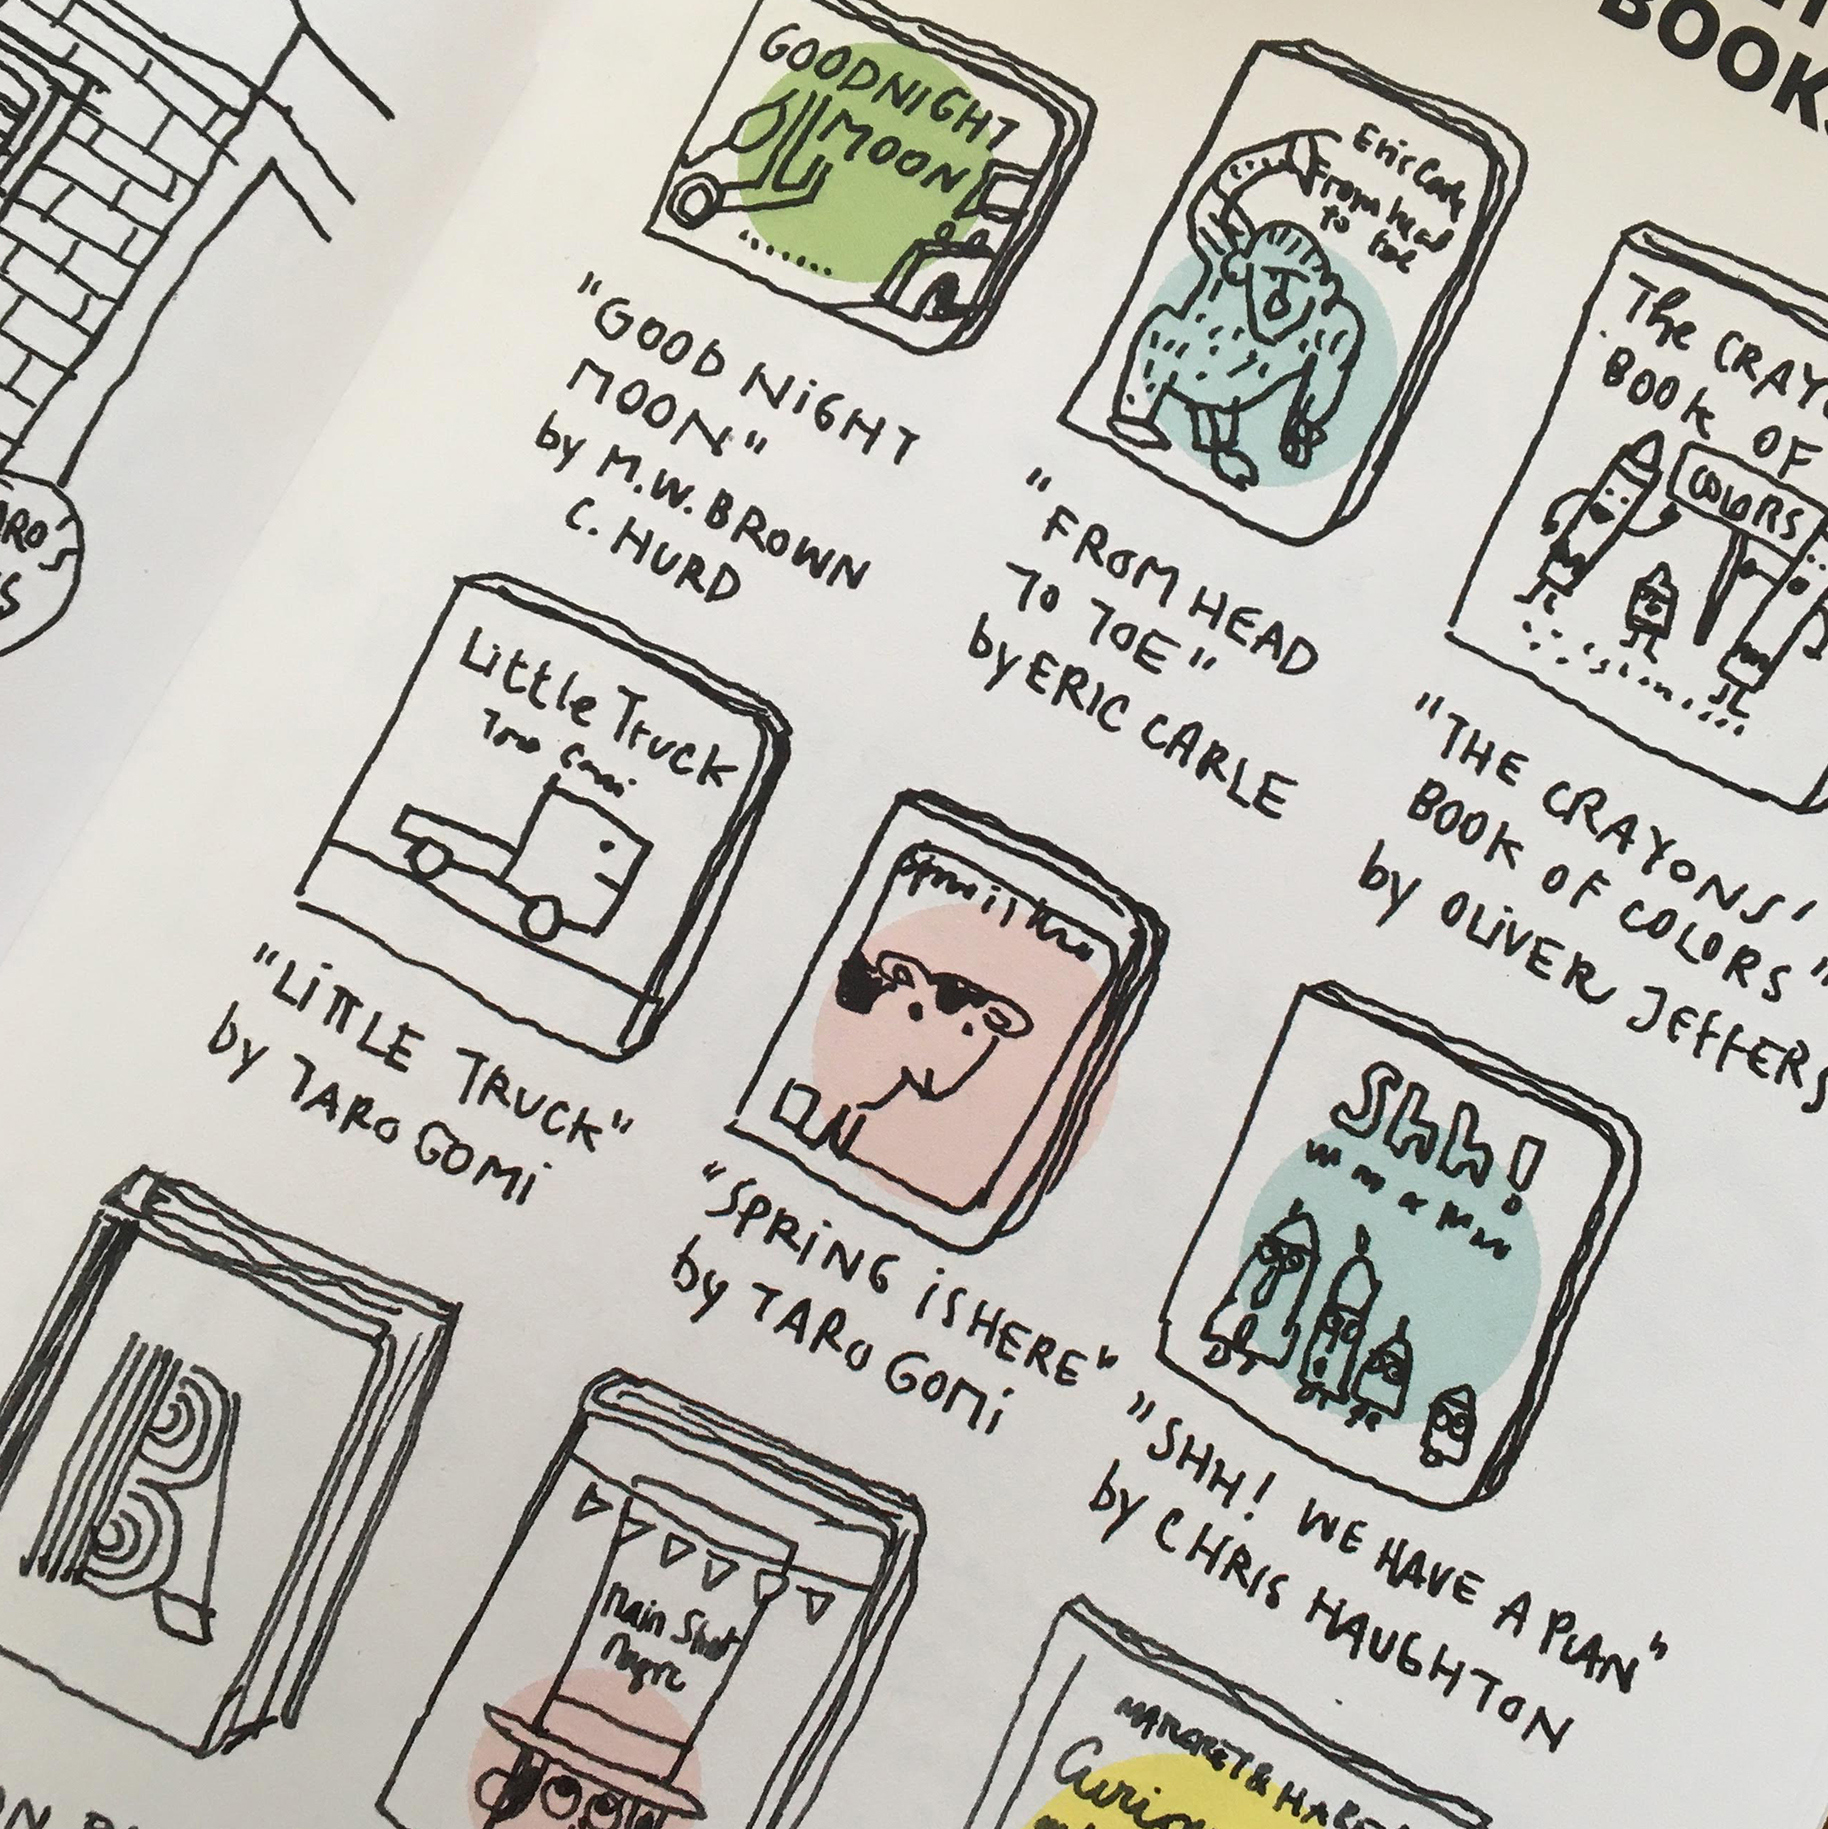 BOOKS
GOODNIGHT
MOON
"GOOD NIGHT
MOON"
by M.W. BROWN
C. HURD
Eric Carle
From head
to toe
"FROM HEAD
TO TOE"
by ERIC CARLE
The CRAYO
BOOK OF
COLORS
"THE CRAYONS'
BOOK OF COLORS"
by OLIVER JEFFERS
ARO'S
S
Little Truck
Taro Gomi
"LITTLE TRUCK"
by TARO GOMI
"SPRING IS HERE"
by TARO GOMI
Shh!
"SHH! WE HAVE A PLAN"
by CHRIS HAUGHTON
MARGRET & HA
Curio